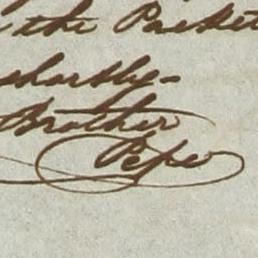 the Packet
shortly-
Brother
Pepe